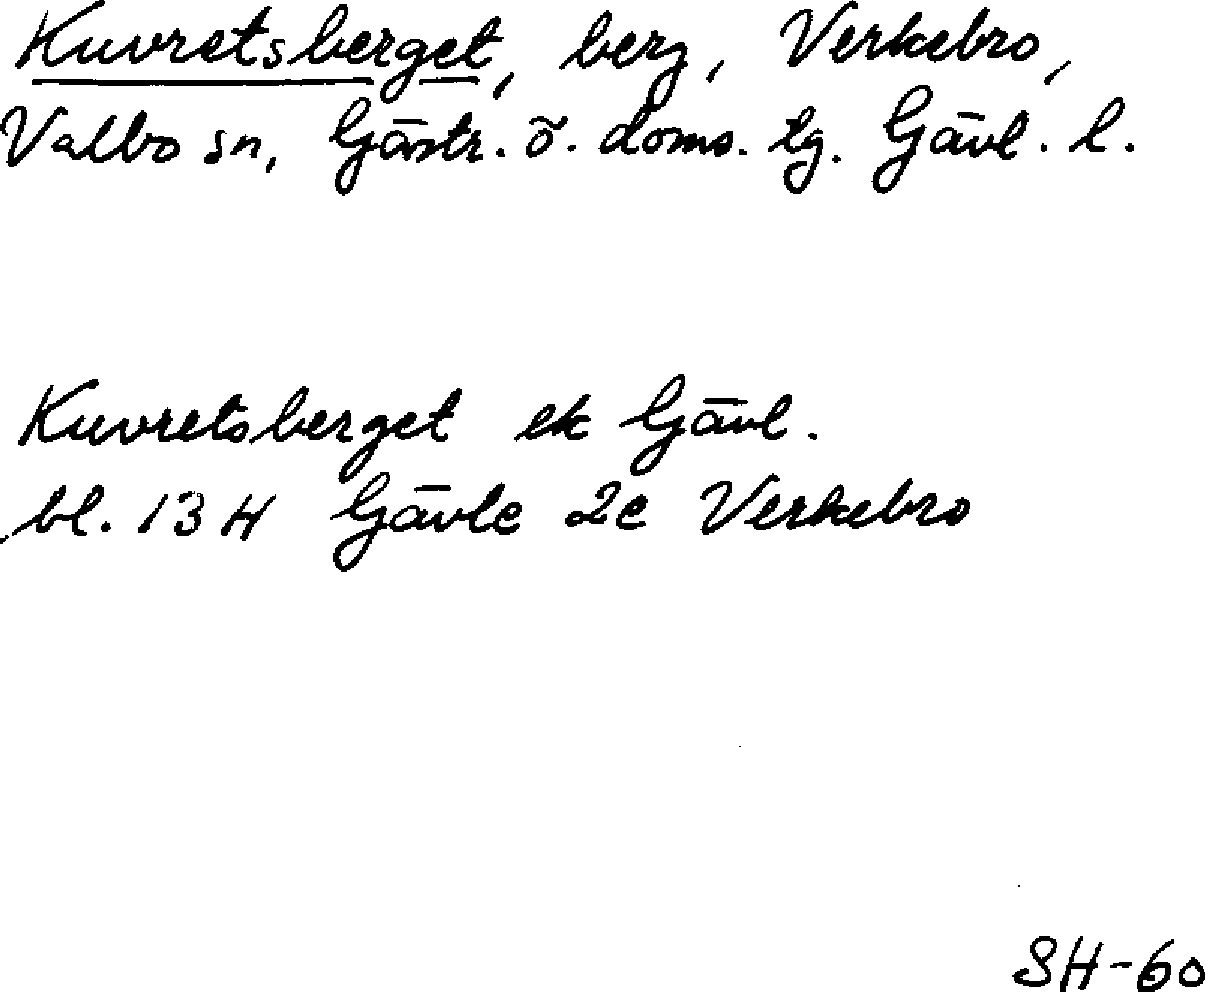 Kuvretsberget, berg, Verkebro,
Valbo sn, Gästr. ö. doms. tg. Gävl. l.
Kuvretsberget ek Gävl.
bl. 13 H Gävle 2c Verkebro
SH-60